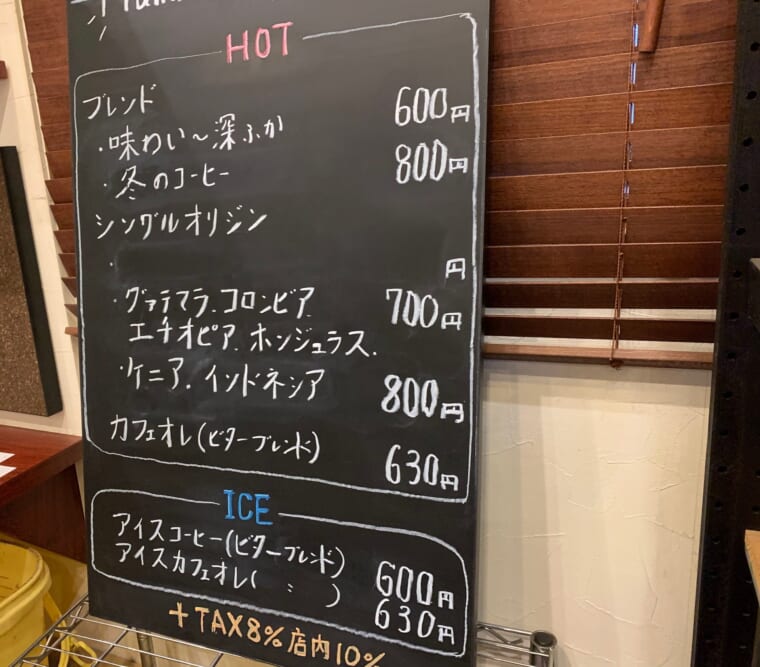 HOT
ブレンド
・味わい〜深ふか 600円
・冬のコーヒー 800円
シングルオリジン
・ 円
・グァテマラ.コロンビア. 700円
エチオピア.ホンジュラス.
・ケニア.インドネシア 800円
カフェオレ(ビターブレンド) 630円
ICE
アイスコーヒー(ビターブレンド) 600円
アイスカフェオレ( 〃 ) 630円
+TAX8%店内10%